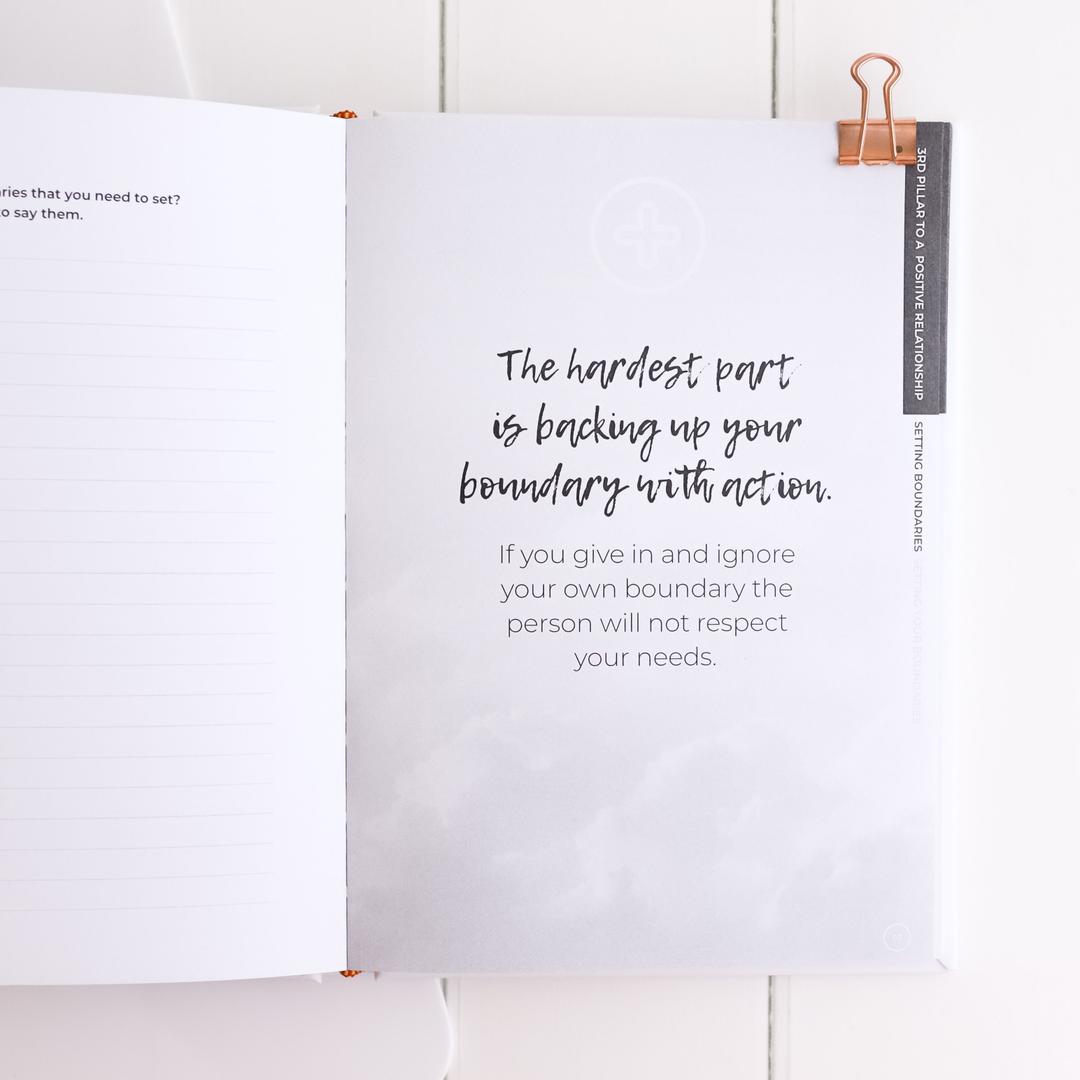 ries that you need to set?
to say them.
The hardest part
is backing up your
boundary with action.
If you give in and ignore
your own boundary the
person will not respect
your needs.
3RD PILLAR TO A POSITIVE RELATIONSHIP
SETTING BOUNDARIES
SETTING YOUR BOUNDARIES